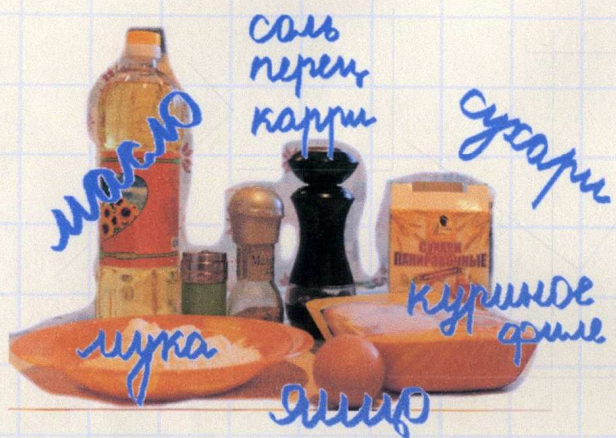 соль
перец
карри
масло
сухари
СУХАРИ
ПАНИРОВОЧНЫЕ
куриное
филе
мука
яйцо